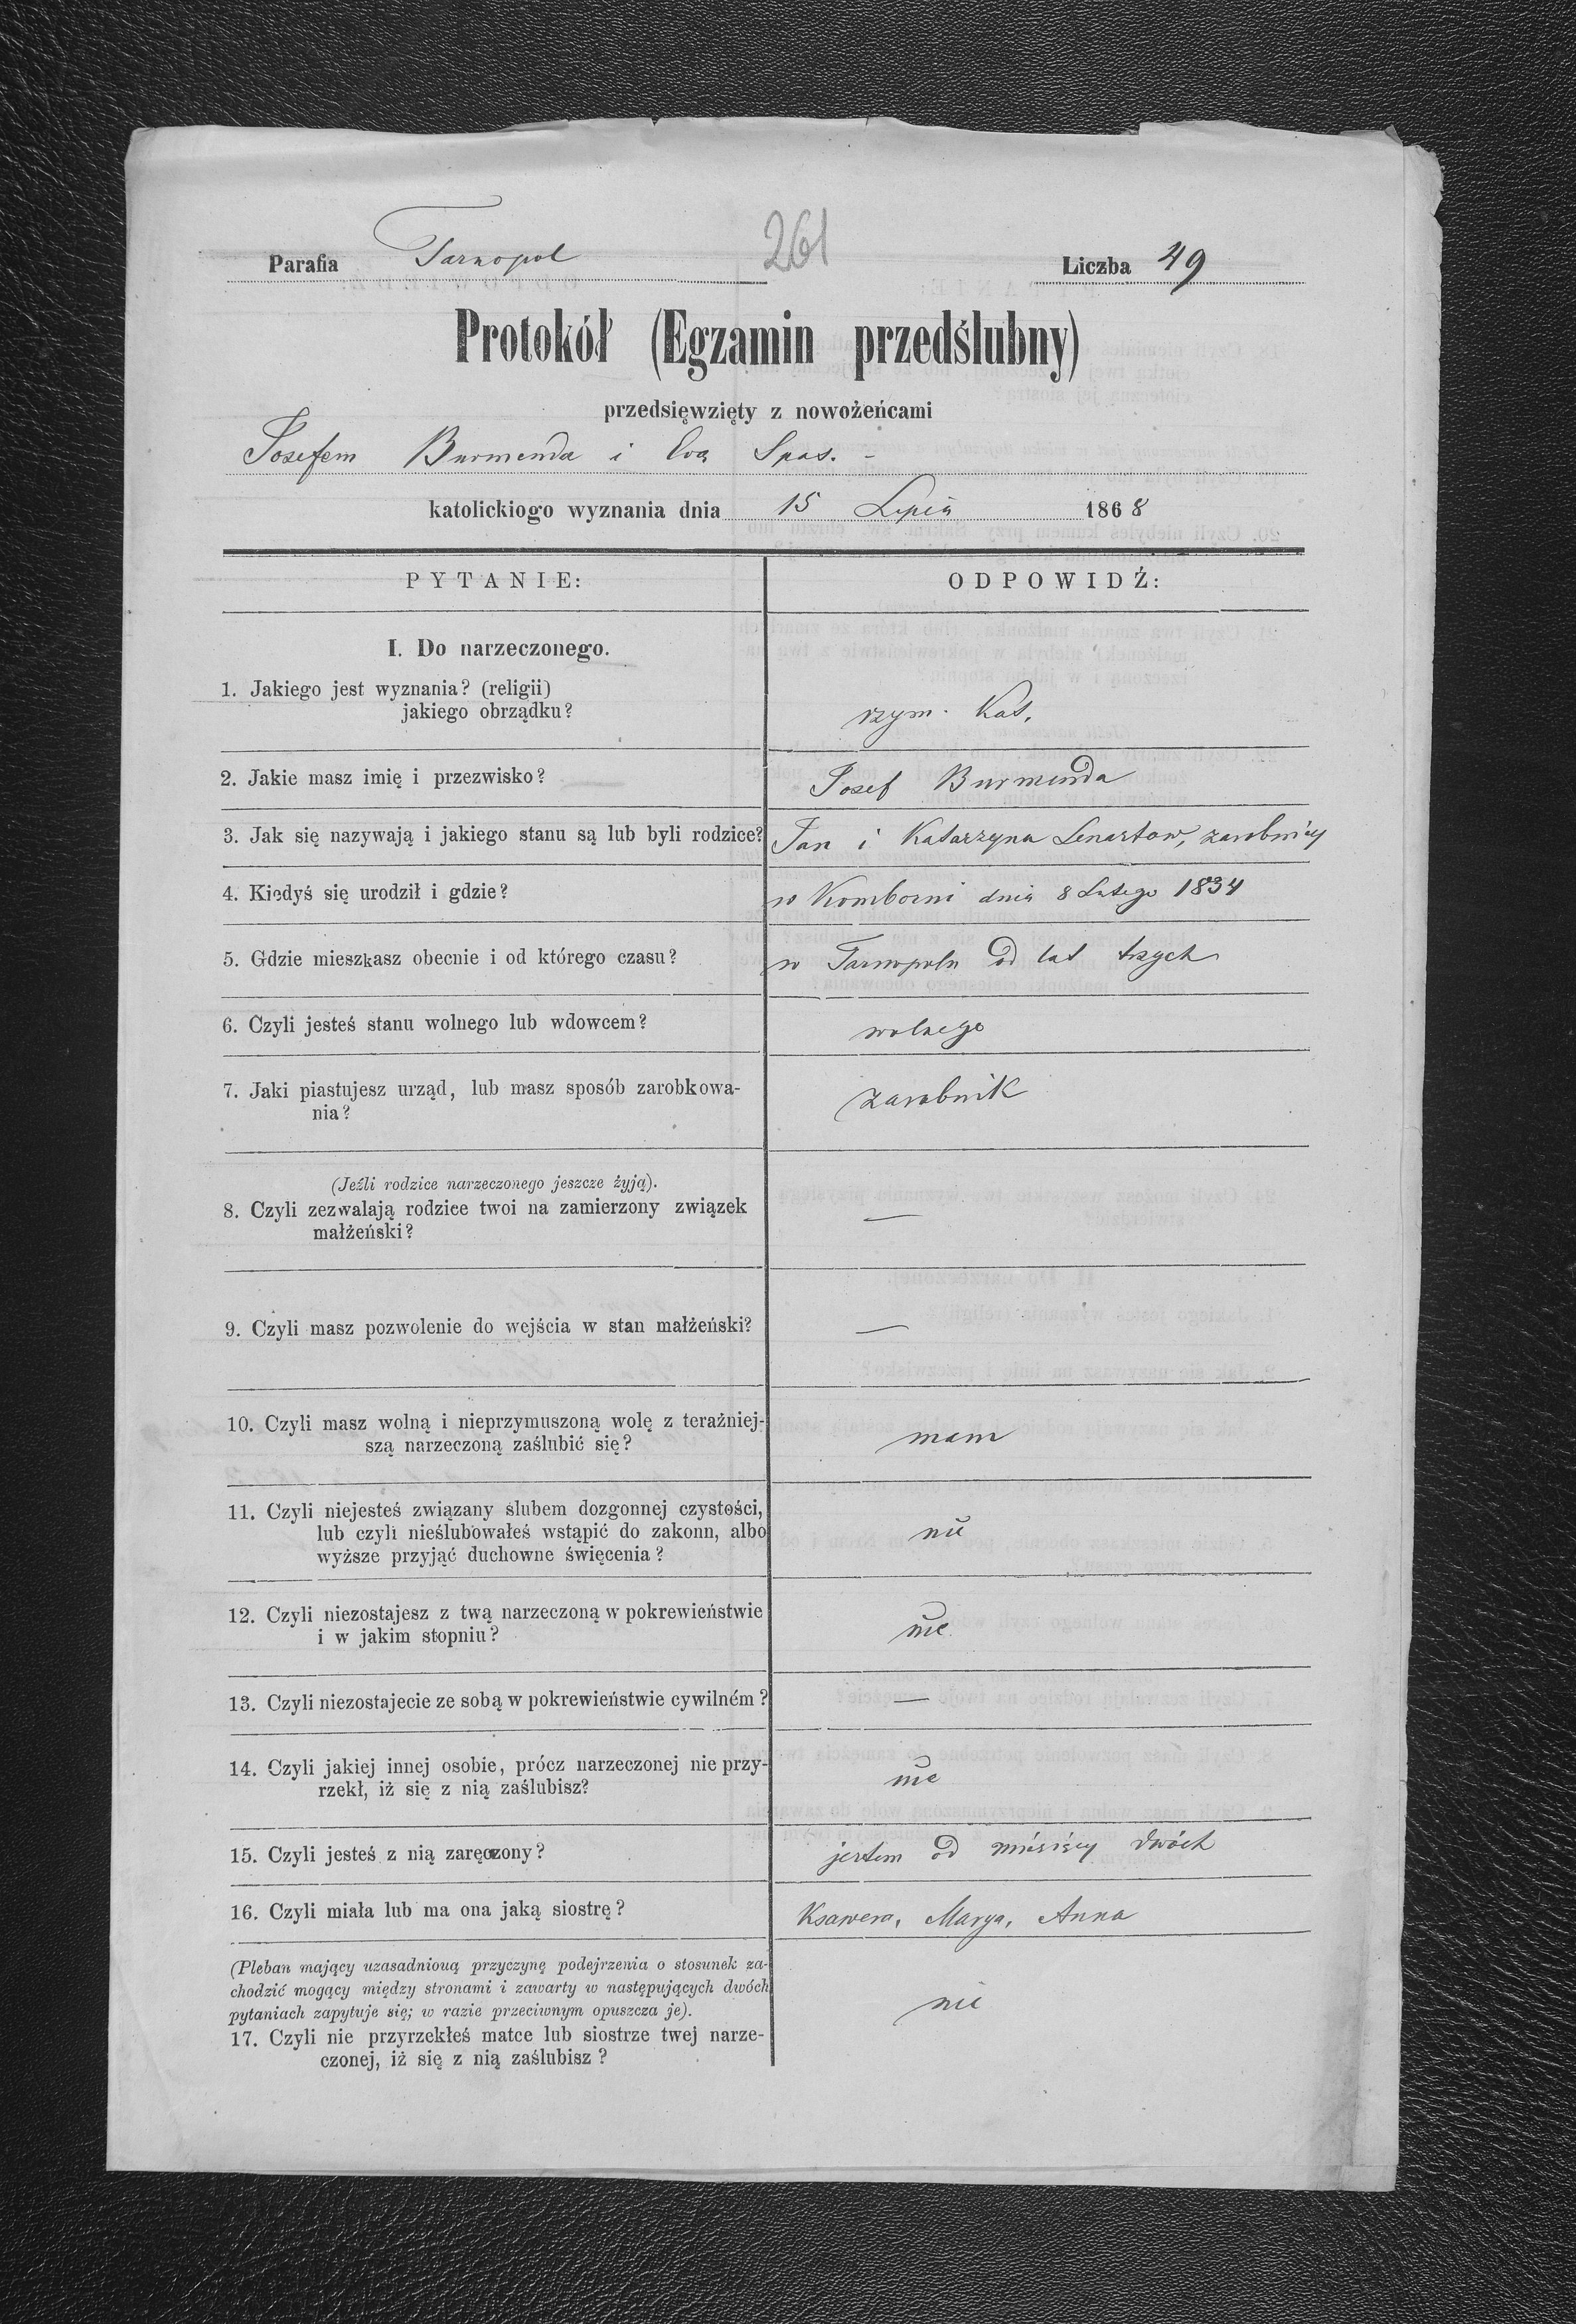 Parafia Tarnopol 261 Liczba 49
Protokół (Egzamin przedślubny)
przedsięwzięty z nowożeńcami
Josefem Burmenda i Ewą Spas. -
katolickiogo wyznania dnia 15 Lipca 1868
PYTANIE: ODPOWIDŹ:
I. Do narzeczonego.
1. Jakiego jest wyznania? (religii)
jakiego obrządku? rzym. Kat.
2. Jakie masz imię i przezwisko? Josef Burmenda
3. Jak się nazywają i jakiego stanu są lub byli rodzice? Jan i Katarzyna Lenartow, zarobnicy
4. Kiedyś się urodził i gdzie? w Komborni dnia 8 Lutego 1834
5. Gdzie mieszkasz obecnie i od którego czasu? w Tarnopolu od lat trzych
6. Czyli jesteś stanu wolnego lub wdowcem? wolnego
7. Jaki piastujesz urząd, lub masz sposób zarobkowa-
nia? zarobnik
(Jeźli rodzice narzeczonego jeszcze żyją).
8. Czyli zezwalają rodzice twoi na zamierzony związek
małżeński? —
9. Czyli masz pozwolenie do wejścia w stan małżeński? —
10. Czyli masz wolną i nieprzymuszoną wolę z teraźniej-
szą narzeczoną zaślubić się? mam
11. Czyli niejesteś związany ślubem dozgonnej czystości,
lub czyli nieślubowałeś wstąpić do zakonn, albo nie
wyższe przyjąć duchowne święcenia?
12. Czyli niezostajesz z twą narzeczoną w pokrewieństwie
i w jakim stopniu? nie
13. Czyli niezostajecie ze sobą w pokrewieństwie cywilném? —
14. Czyli jakiej innej osobie, prócz narzeczonej nie przy-
rzekł, iż się z nią zaślubisz? nie
15. Czyli jesteś z nią zaręczony? jestem od misięcy dwóch
16. Czyli miała lub ma ona jaką siostrę? Ksawera, Marya, Anna
(Pleban mający uzasadniouą przyczynę podejrzenia o stosunek za-
chodzić mogący między stronami i zawarty w następujących dwóch
pytaniach zapytuje się; w razie przeciwnym opuszcza je). nie
17. Czyli nie przyrzekłeś matce lub siostrze twej narze-
czonej, iż się z nią zaślubisz?